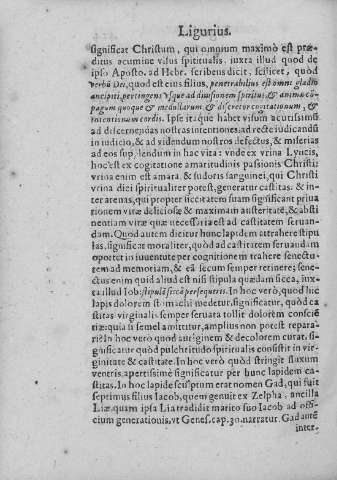 Ligurius.
significat Christum, qui omnium maximè est præ-
ditus acumine visus spiritualis, iuxta illud quod de
ipso Aposto. ad Hebr. scribens dicit, scilicet, quòd
verbũ Dei, quod est eius filius, penetrabilius est omni gladio
ancipiti, pertingens vsque ad diuisionem spiritus, & animæ cõ-
pagum quoque & medullarum, & discretor cogitationum, &
intentionum cordis. Ipse itaque habet visum acutissimũ
ad discernendas nostras intentiones, ad rectè iudicandũ
in iudicio, & ad videndum nostros defectus, & miserias
ad eos suppléndum in hac vita: vnde ex vrina Lyncis,
hoc est ex cogitatione amaritudinis passionis Christi:
vrina enim est amara, & sudoris sanguinei, qui Christi
vrina dici spiritualiter potest, generatur castitas, & in-
ter arenas, qui propter siccitatem suam significant priua
tionem vitæ deliciosæ & maximam austeritatẽ, & absti
nentiam vitæ quæ necessaria est ad castitatem seruan-
dam. Quod autem dicitur hunc lapidem attrahere stipu
las, significat moraliter, quòd ad castitatem seruandam
oportet in iuuentute per cognitionem trahere senectu-
tem ad memoriam, & eã secum semper retinere; sene-
ctus enim quid aliud est nisi stipula quædam sicca, iux-
ta illud Iob: stipulã siccã persequeris. In hoc verò, quod hic
lapis dolorem stomachi medetur, significatur, quòd ca
stitas virginalis semper seruata tollit dolorem consciẽ
tiæ: quia si semel amittitur, amplius non potest repara-
ri: In hoc verò quod auriginem & decolorem curat, si-
gnificatur quòd pulchritudo spiritualis consistit in vir-
ginitate & castitate. In hoc verò quòd stringit fluxum
ventris, apertissimè significatur per hunc lapidem ca-
stitas. In hoc lapide scisptum erat nomen Gad, qui fuit
septimus filius Iacob, quem genuit ex Zelpha, ancilla
Liæ, quam ipsa Lia tradidit marito suo Iacob ad offi-
cium generationis, vt Genes. cap. 30. narratur. Gad autẽ
inter-